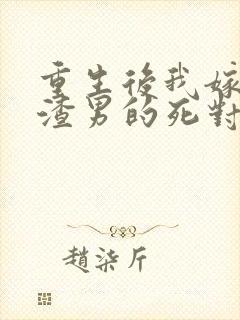 重生後我嫁
渣男的死對
趙柒斤